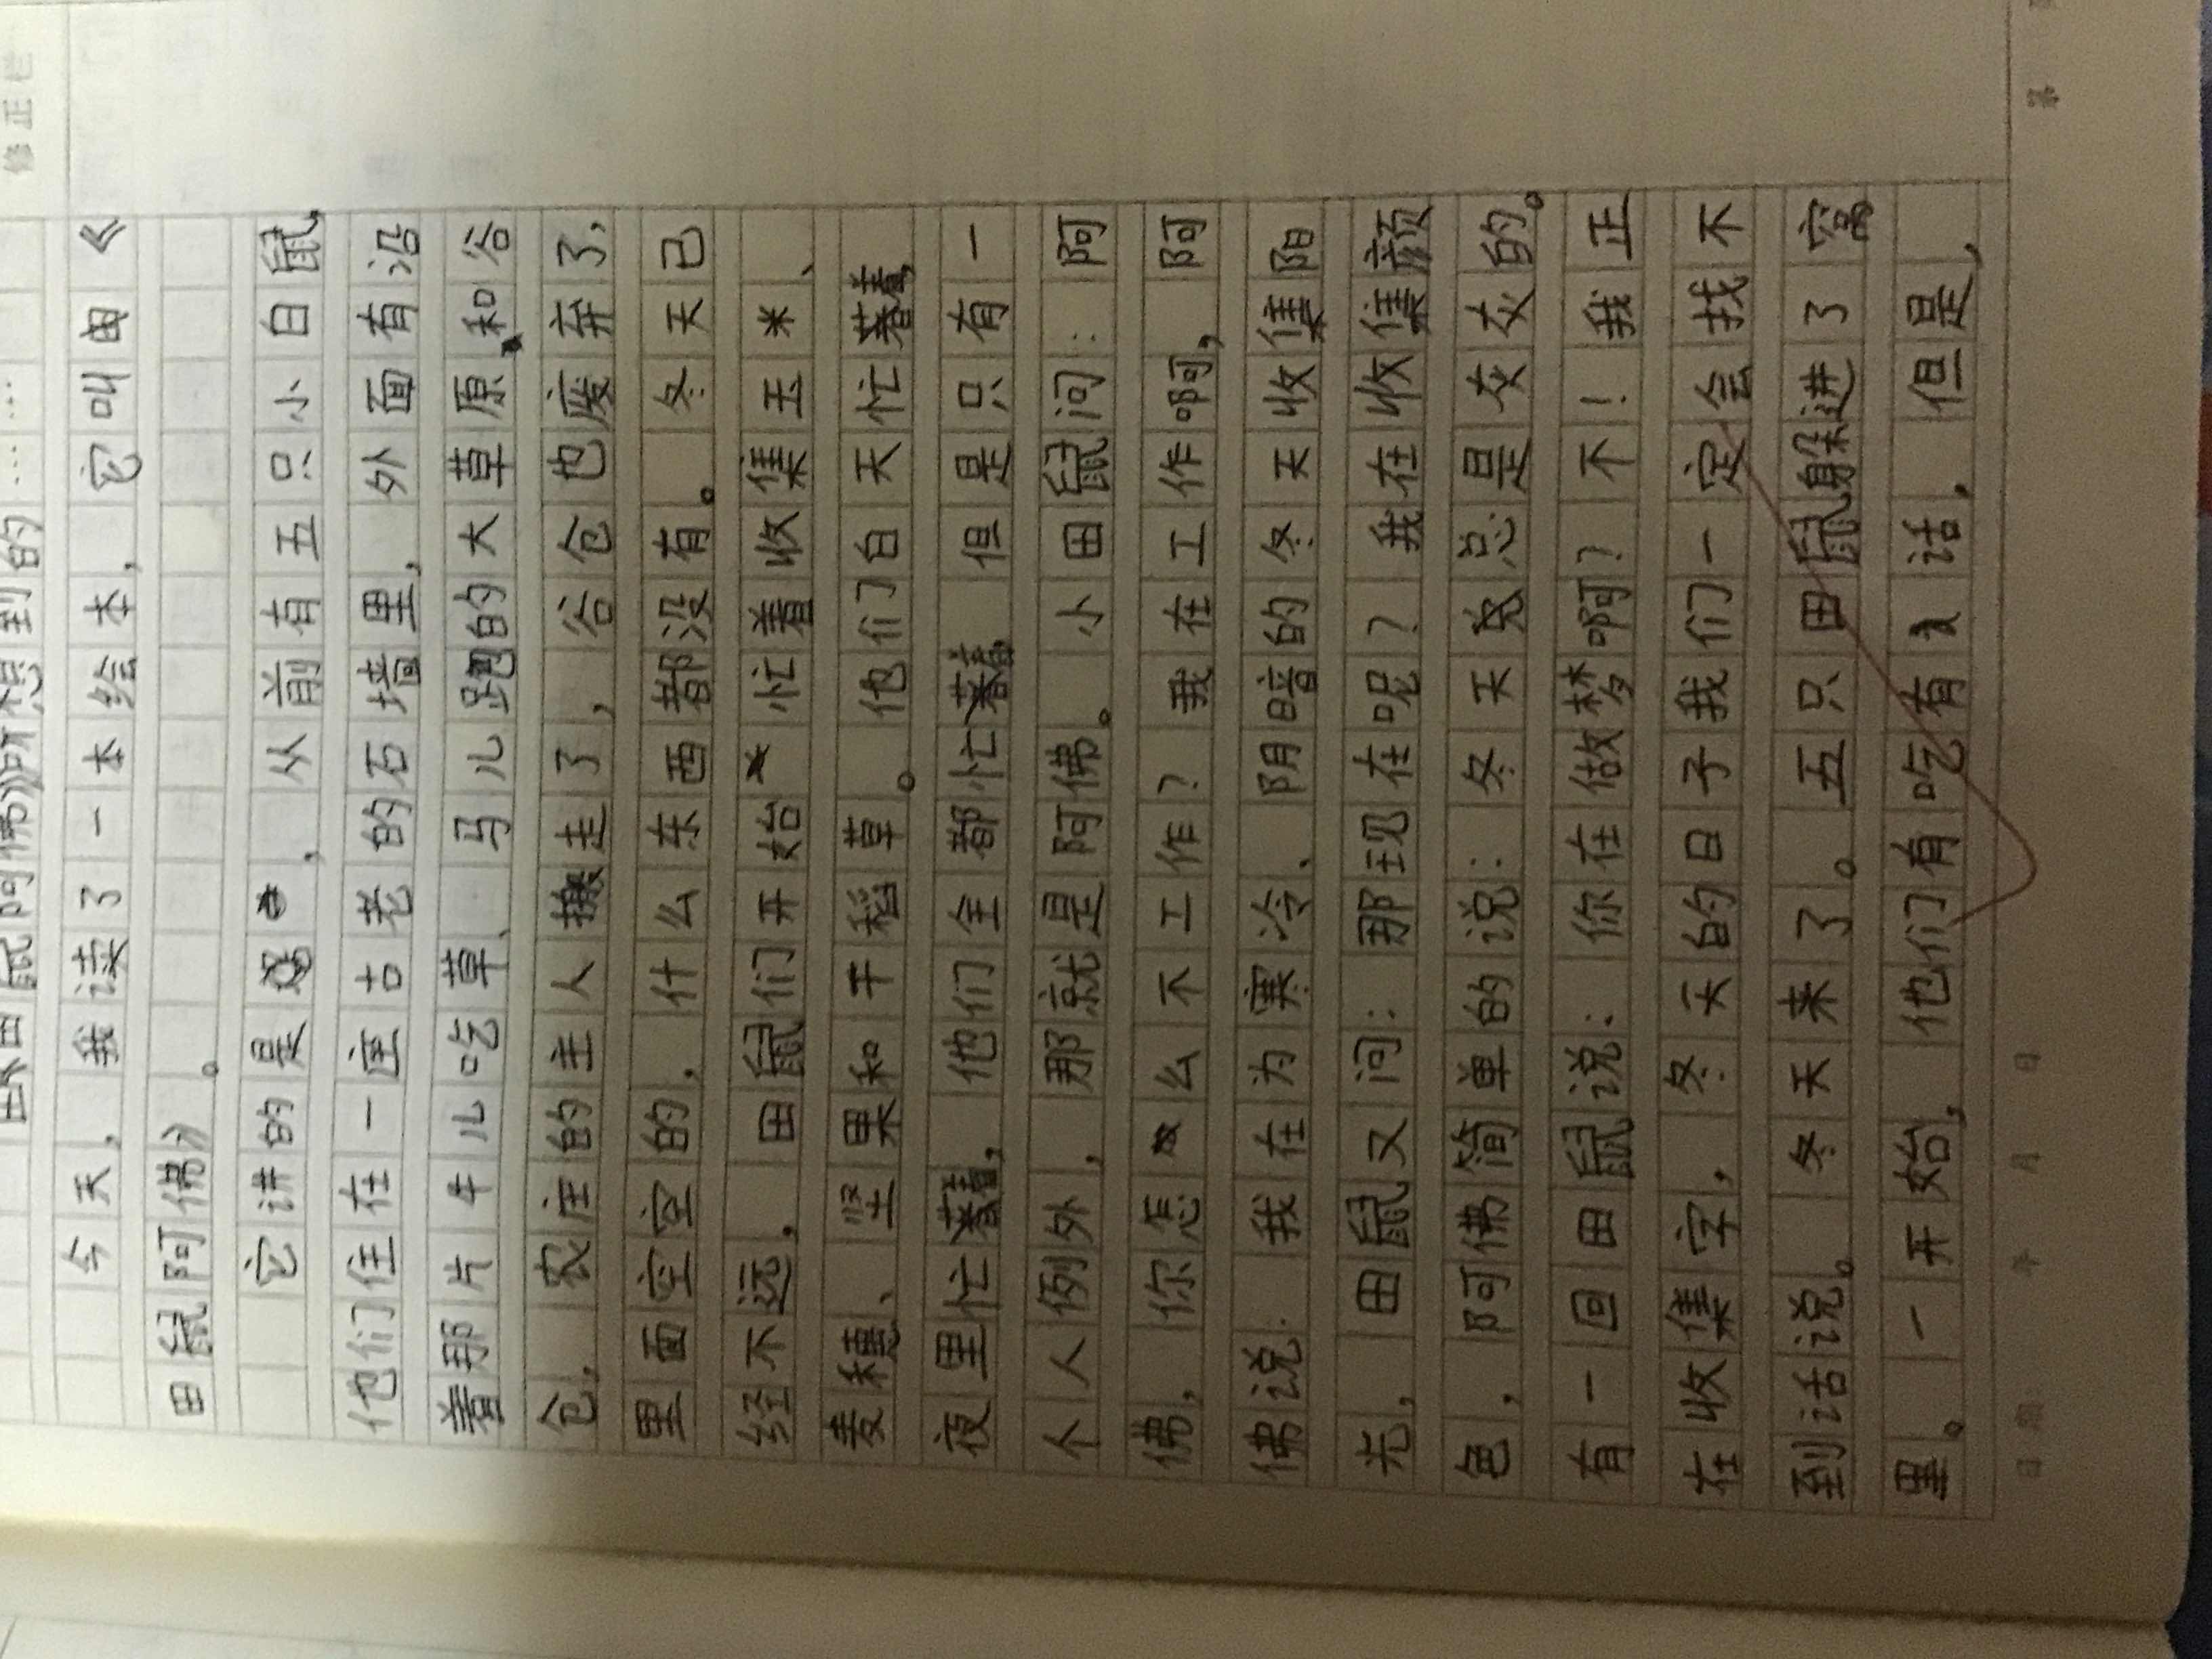 修正栏
田鼠阿佛》所想到的……
今天,我读了一本绘本,它叫《
田鼠阿佛》。
它讲的是,从前有五只小白鼠,
他们住在一座古老的石墙里,外面有沿
着那片牛儿吃草、马儿跑的大草原和谷
仓,农庄的主人搬走了,谷仓也废弃了,
里面空空的,什么东西都没有。冬天已
经不远,田鼠们开始忙着收集玉米、
麦穗、坚果和干稻草。他们白天忙着,
夜里忙着,他们全都忙着但是只有一
个人例外,那就是阿佛。小田鼠问:阿
佛,你怎么不工作?我在工作啊,阿
佛说:我在为寒冷、阴暗的冬天收集阳
光,田鼠又问:那现在呢?我在收集颜
色,阿佛简单的说:冬天总是灰灰的。
有一回田鼠说:你在做梦啊?不!我正
在收集字,冬天的日子我们一定会找不
到话说。冬天来了。五只田鼠躲进了窝
里。一开始,他们有吃有话,但是,
日期 年 月 日
第